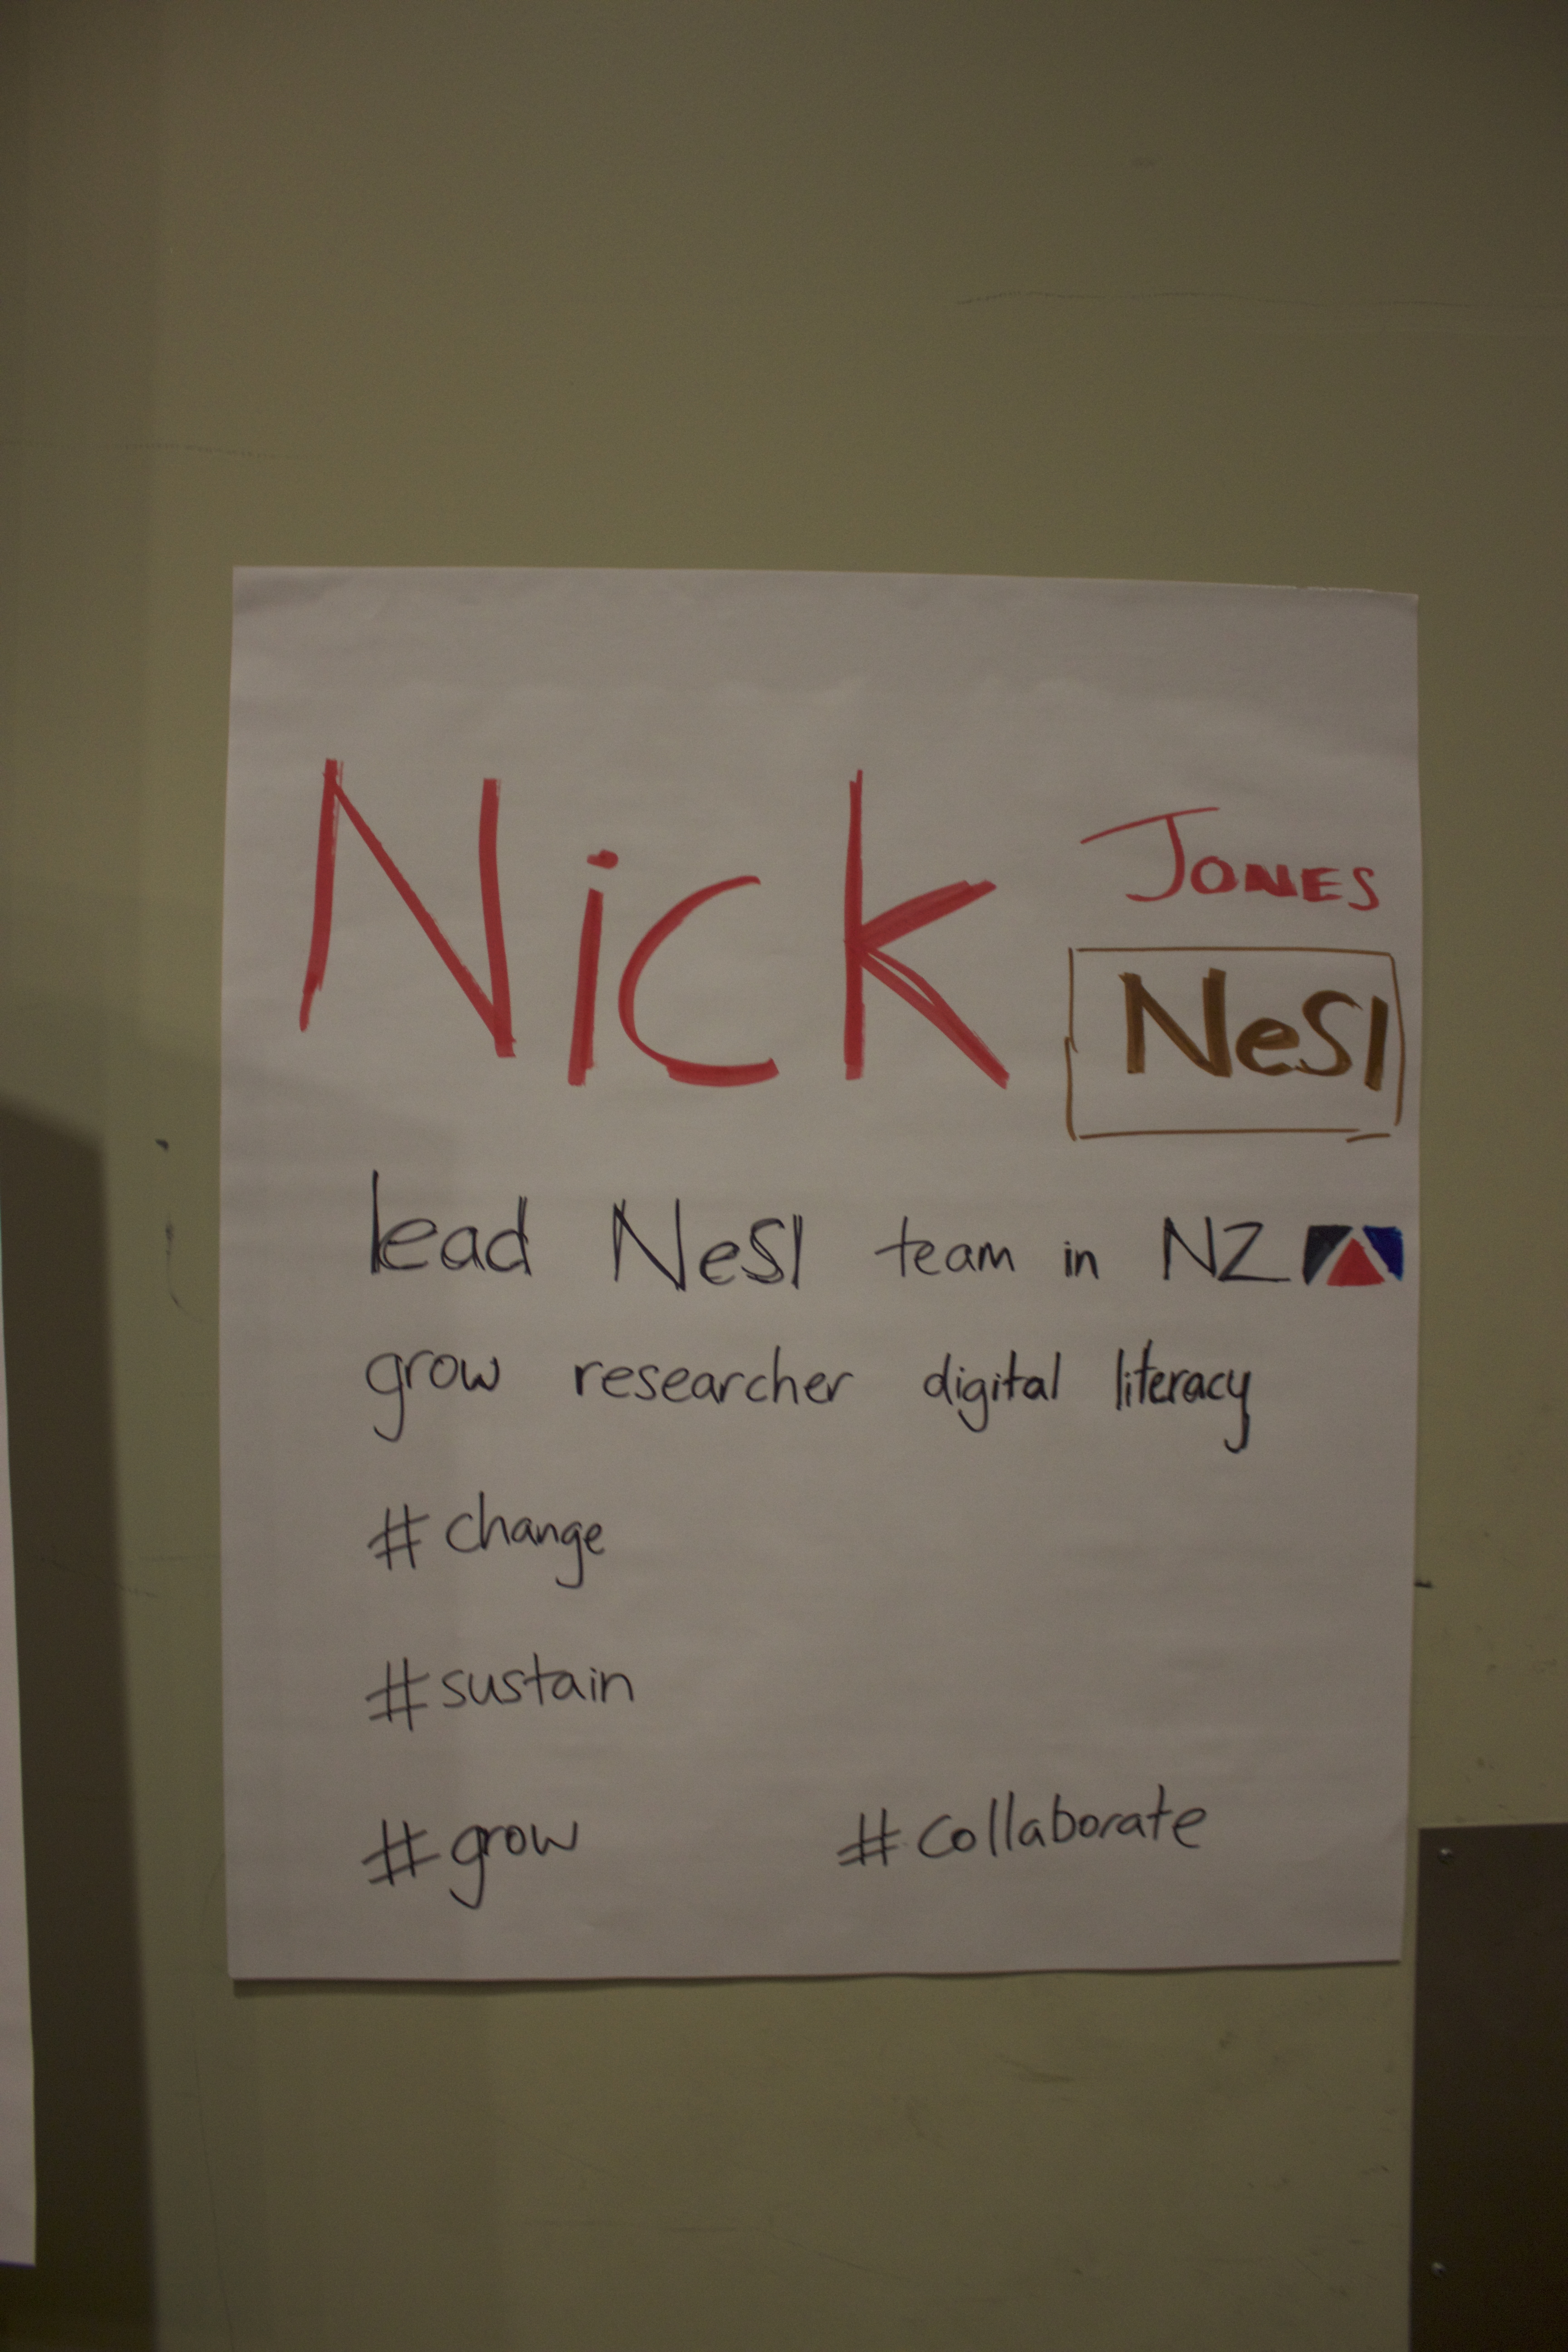 Nick JONES
NeSI
lead NeSI team in NZ
grow researcher digital literacy
#change
#sustain
#grow #collaborate